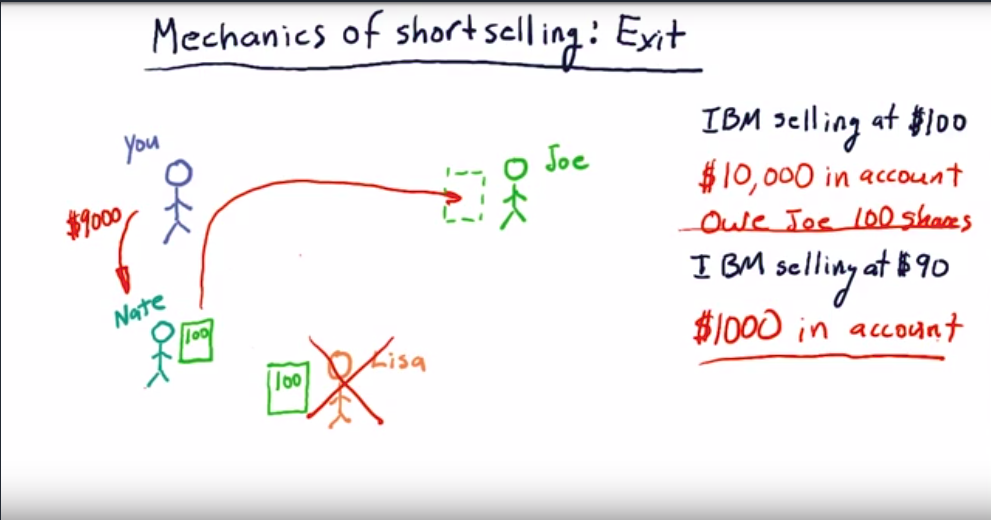 Mechanics of shortselling: Exit
You
Joe
$9000
Nate
100
100
Lisa
IBM selling at $100
$10,000 in account
Owe Joe 100 shares
IBM selling at $90
$1000 in account